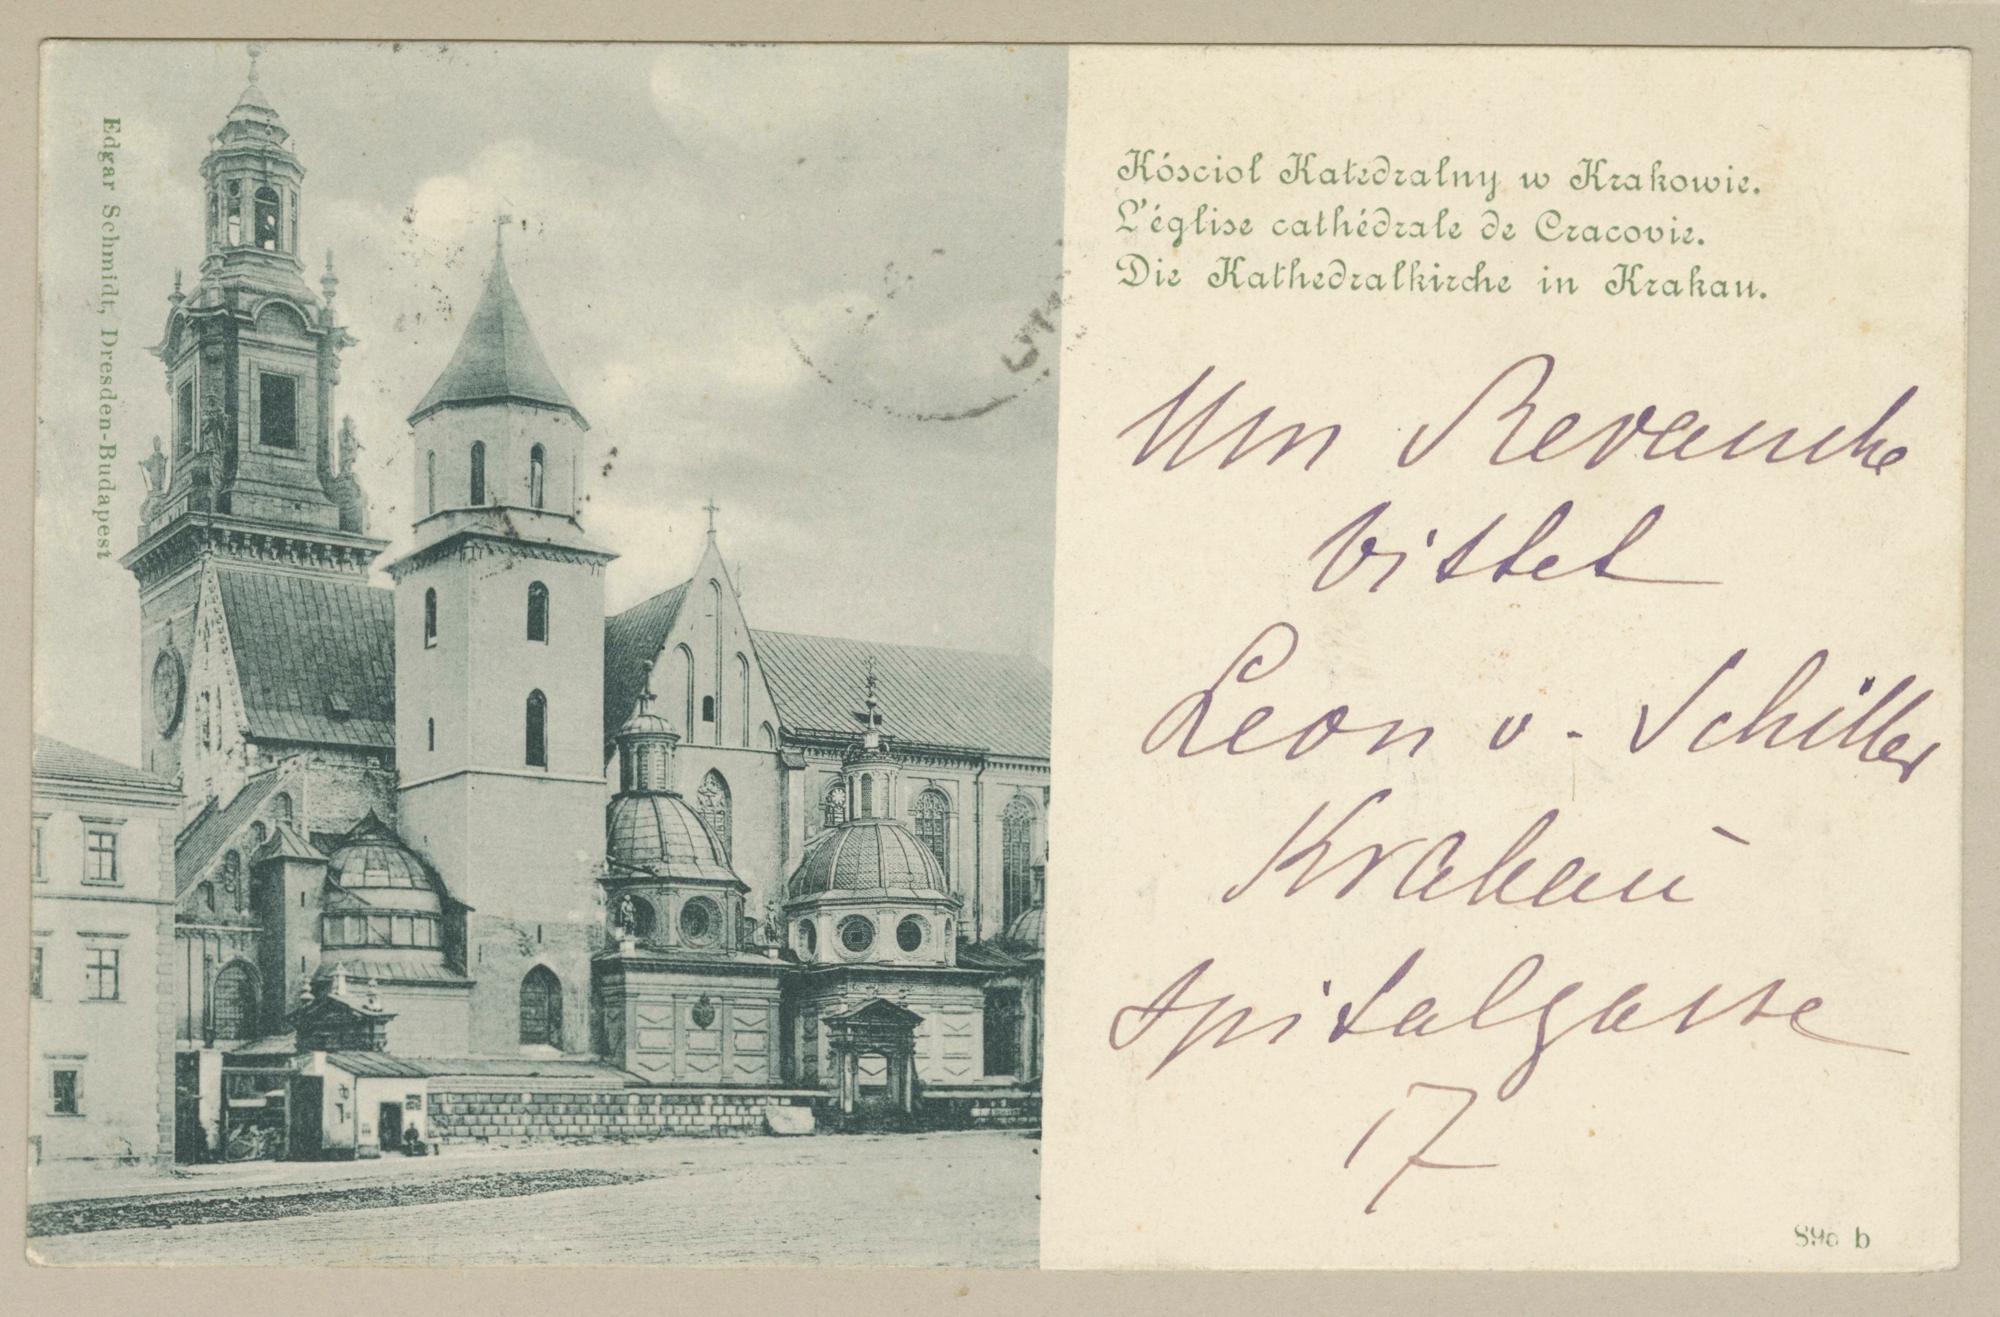 Edgar Schmidt, Dresden-Budapest
Kósciol Katedralny w Krakowie.
L'église cathédrale de Cracovie.
Die Kathedralkirche in Krakau.
Um Revanche
bittet
Leon v. Schiller
Krakau
Spitalgasse
17
896 b